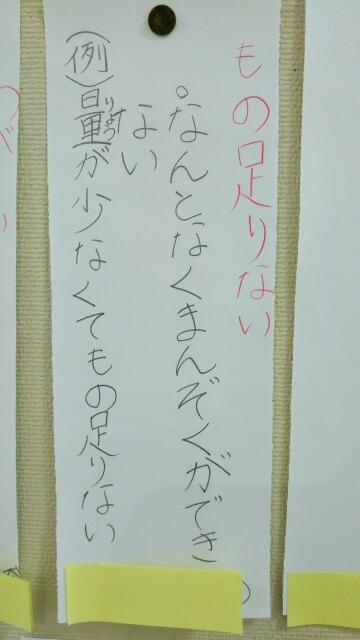 もの足りない
。なんとなくまんぞくができ
ない
(例)量が少なくてもの足りない
りょう